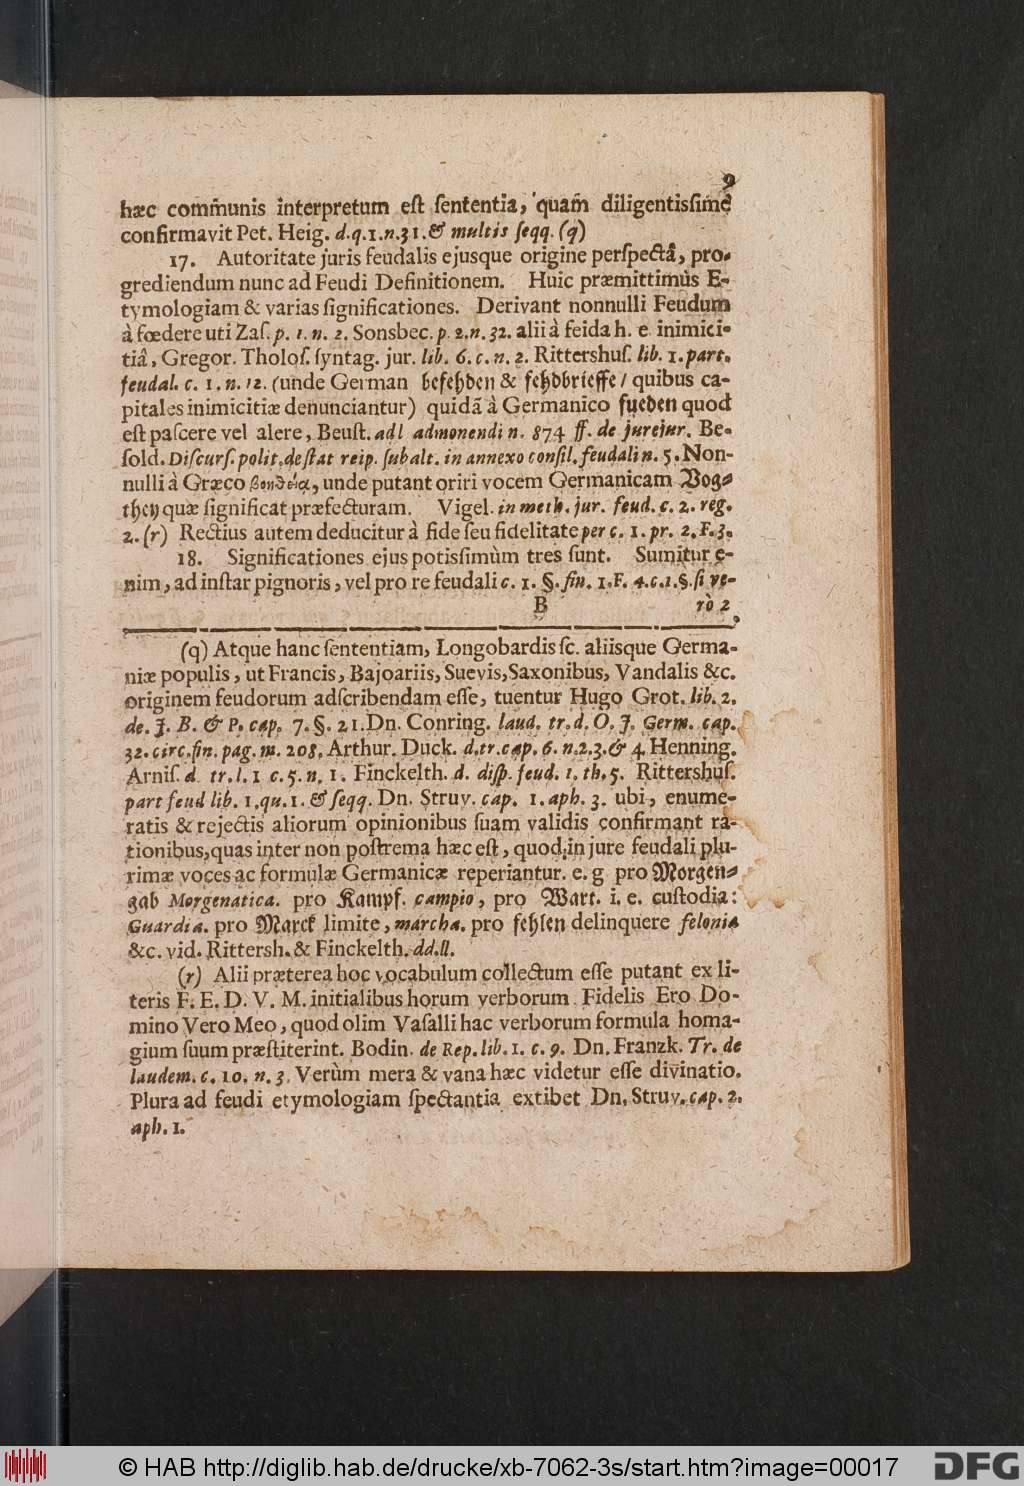 9
hæc com̃unis interpretum eſt ſententia, quam̃ diligentisſimè
confirmavit Pet. Heig. d.q.1.n.31.& multis ſeqq. (q)
17. Autoritate juris feudalis ejusque origine perſpectâ, pro-
grediendum nunc ad Feudi Definitionem. Huic præmittimùs E-
tymologiam & varias ſignificationes. Derivant nonnulli Feudum
à fœdere uti Zaſ. p. 1. n. 2. Sonsbec. p. 2. n. 32. alii à feida h. e inimici-
tiâ, Gregor. Tholoſ. ſyntag. jur. lib. 6. c. n. 2. Rittershuſ. lib. 1. part.
feudal. c. 1. n. 12. (unde German befehden & fehdbrieffe / quibus ca-
pitales inimicitiæ denunciantur) quidã à Germanico fueden quod
eſt paſcere vel alere, Beuſt. ad l admonendi n. 874 ff. de jurejur. Be-
ſold. Diſcurſ. polit. de ſtat reip. ſubalt. in annexo conſil. feudali n. 5. Non-
nulli à Græco βοηθεία, unde putant oriri vocem Germanicam Vog-
they quæ ſignificat præfecturam. Vigel. in meth. jur. feud. c. 2. reg.
2. (r) Rectius autem deducitur à fide ſeu fidelitate per c. 1. pr. 2. F. 3.
18. Significationes ejus potisſimùm tres ſunt. Sumitur e-
nim, ad inſtar pignoris, vel pro re feudali c. 1. §. fin. 1. F. 4. c. 1. §. ſi ve-
B rò 2
(q) Atque hanc ſententiam, Longobardis ſc. aliisque Germa-
niæ populis, ut Francis, Bajoariis, Suevis, Saxonibus, Vandalis &c.
originem feudorum adſcribendam eſſe, tuentur Hugo Grot. lib. 2.
de. J. B. & P. cap. 7. §. 21. Dn. Conring. laud. tr. d. O. J. Germ. cap.
32. circ. fin. pag. m. 208. Arthur. Duck. d. tr. cap. 6. n. 2. 3. & 4. Henning.
Arniſ. d. tr. l. 1 c. 5. n. 1. Finckelth. d. diſp. feud. 1. th. 5. Rittershuſ.
part feud lib. 1. qu. 1. & ſeqq. Dn. Struv. cap. 1. aph. 3. ubi, enume-
ratis & rejectis aliorum opinionibus ſuam validis confirmant ra-
tionibus, quas inter non poſtrema hæc eſt, quod, in jure feudali plu-
rimæ voces ac formulæ Germanicæ reperiantur. e. g pro Morgen-
gab Morgenatica. pro Kampf. campio, pro Wart. i. e. cuſtodia:
Guardia. pro Marck limite, marcha. pro fehlen delinquere felonia
&c. vid. Rittersh. & Finckelth. dd. ll.
(r) Alii præterea hoc vocabulum collectum eſſe putant ex li-
teris F. E. D. V. M. initialibus horum verborum Fidelis Ero Do-
mino Vero Meo, quod olim Vaſalli hac verborum formula homa-
gium ſuum præſtiterint. Bodin. de Rep. lib. 1. c. 9. Dn. Franzk. Tr. de
laudem. c. 10. n. 3. Verùm mera & vana hæc videtur eſſe divinatio.
Plura ad feudi etymologiam ſpectantia extibet Dn. Struv. cap. 2.
aph. 1.
© HAB http://diglib.hab.de/drucke/xb-7062-3s/start.htm?image=00017
DFG